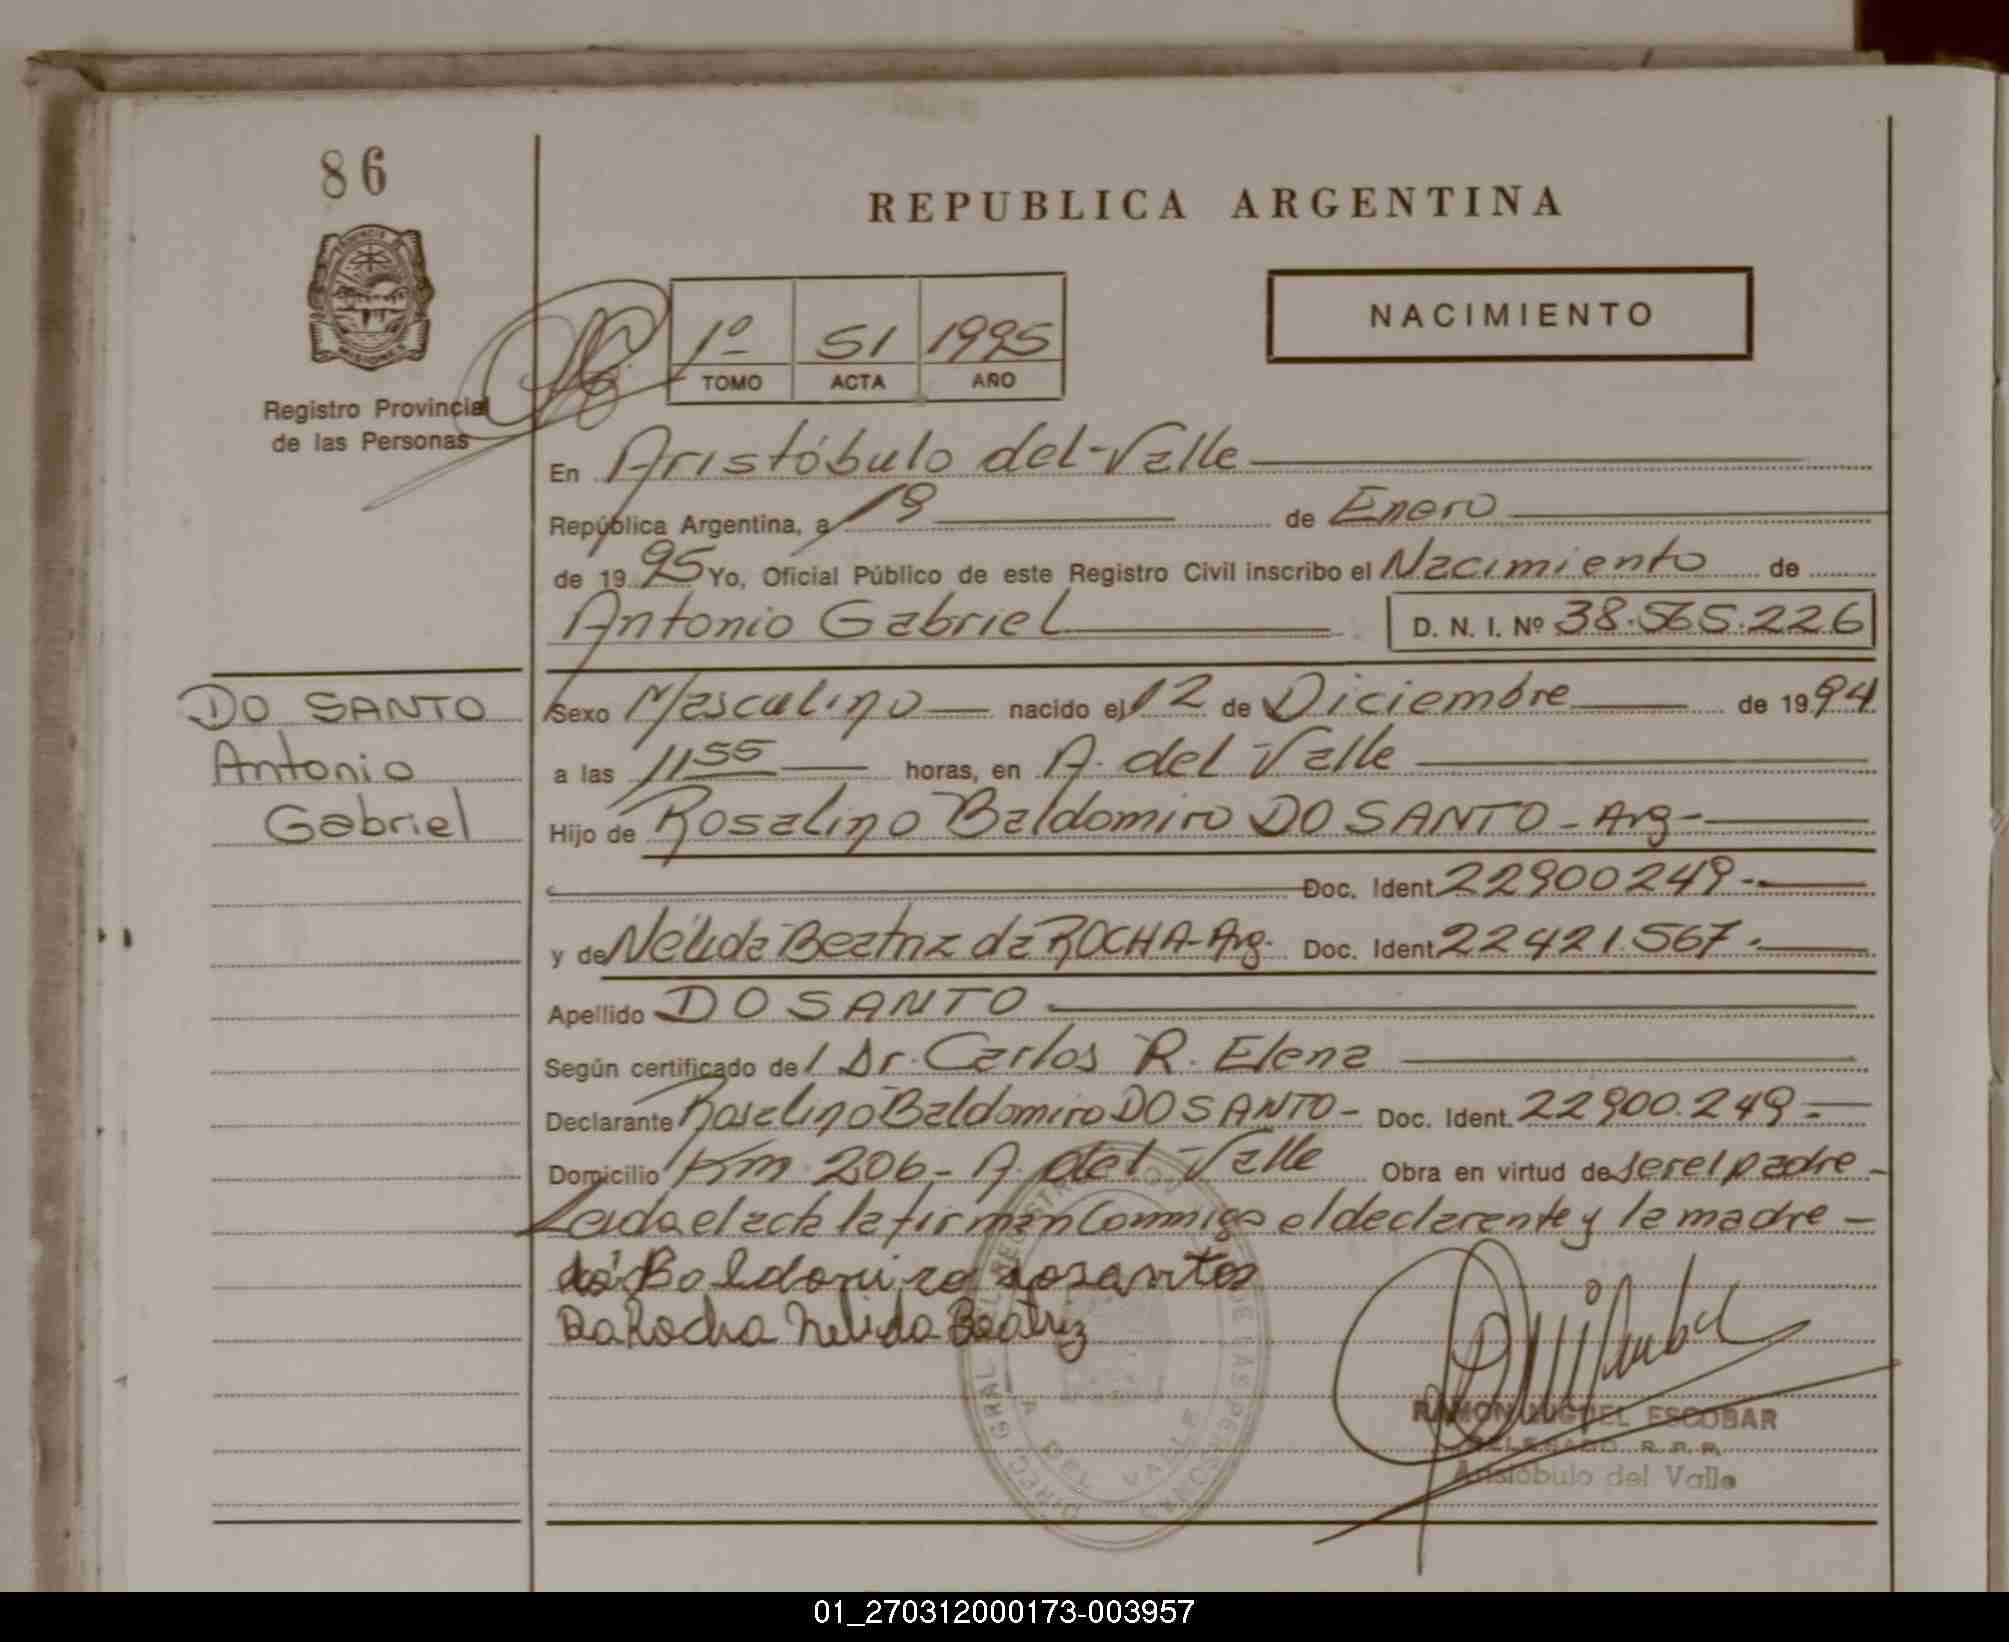 86
REPUBLICA ARGENTINA
NACIMIENTO
1º 51 1995
TOMO ACTA AÑO
Registro Provincial
de las Personas
En Aristóbulo del Valle
República Argentina, a 19 de Enero
de 1995 Yo, Oficial Público de este Registro Civil inscribo el Nacimiento de
Antonio Gabriel D. N. I. Nº 38.565.226
DO SANTO
Antonio
Gabriel
Sexo Masculino nacido el 12 de Diciembre de 1994
a las 11 55 horas, en A. del Valle
Hijo de Rosalino Baldomiro DO SANTO - Arg -
Doc. Ident. 22900249 -
y de Nélida Beatriz da ROCHA - Arg. Doc. Ident. 22421.567 -
Apellido DO SANTO
Según certificado del Dr. Carlos R. Elena
Declarante Rosalino Baldomiro DO SANTO - Doc. Ident. 22900.249 -
Domicilio Km. 206 - A. del Valle Obra en virtud de ser el padre -
Leida el acta la firman Conmigo el declarante y la madre -
Baldomiro dosantos
Da Rocha Nelida Beatriz
RAMON MIGUEL ESCOBAR
DELEGADO R. P. P.
Aristóbulo del Valle
01_270312000173-003957